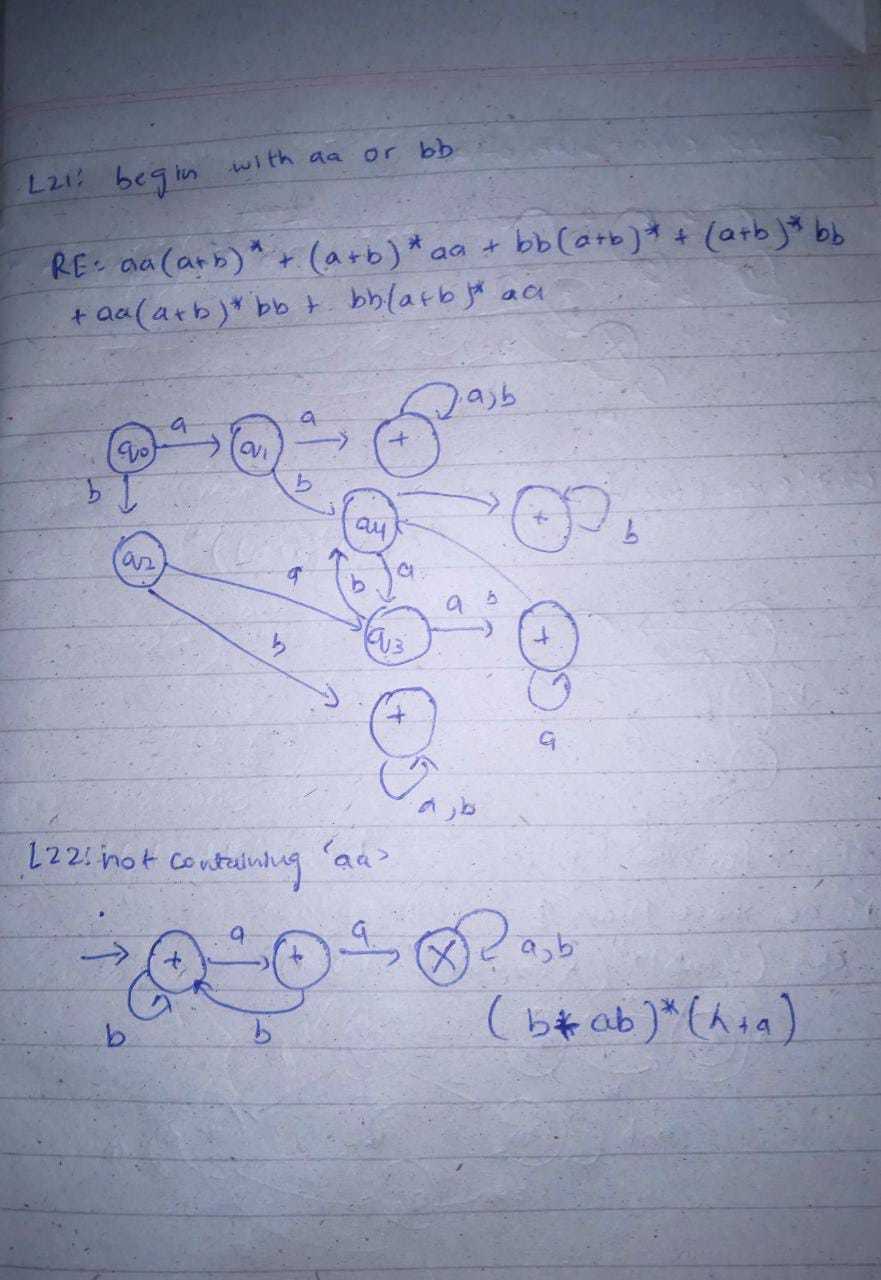 L21: begin with aa or bb
RE: aa(a+b)* + (a+b)* aa + bb(a+b)* + (a+b)* bb
+ aa(a+b)* bb + bb(a+b)* aa
a,b
q0 a q1 a +
b b
q4 + b
q2
a b a
a b
q3 +
b
+
a
a,b
L22: not containing 'aa'
+ a + a X a,b
b b
(b* ab)*(Λ+a)